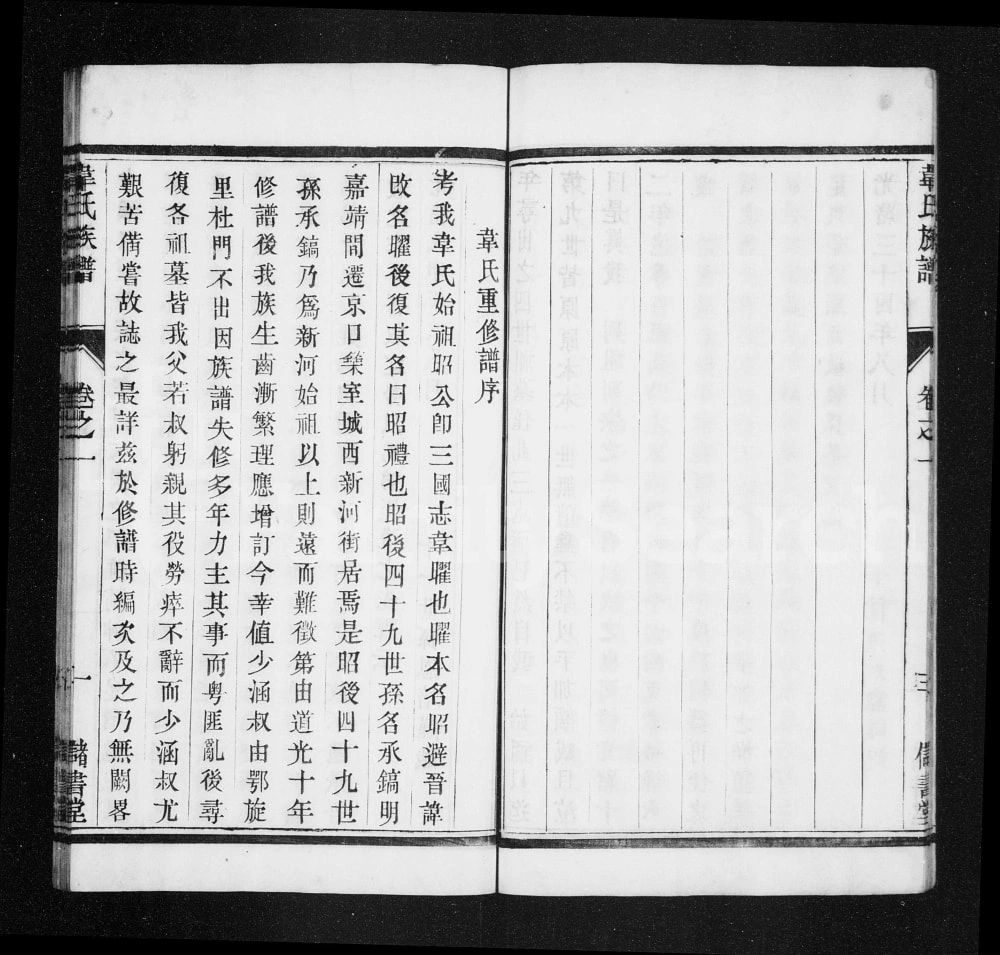 韋氏族譜 卷之一 三 儲書堂
韋氏重修譜序
考我韋氏始祖昭公卽三國志韋曜也曜本名昭避晉諱
改名曜後復其名曰昭禮也昭後四十九世孫名承鎬明
嘉靖間遷京口築室城西新河街居焉是昭後四十九世
孫承鎬乃爲新河始祖以上則遠而難徵第由道光十年
修譜後我族生齒漸繁理應增訂今幸值少涵叔由鄂旋
里杜門不出因族譜失修多年力主其事而粵匪亂後尋
復各祖墓皆我父若叔躬親其役勞瘁不辭而少涵叔尤
艱苦備嘗故誌之最詳茲於修譜時編次及之乃無闕畧
韋氏族譜 卷之一 一 儲書堂